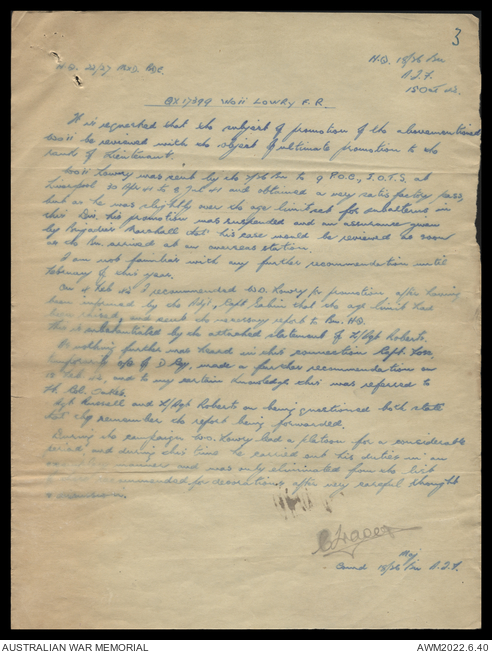 3
H.Q. 18/36 Bn
A.I.F.
15 Oct 42.
H.Q. 22/27 Bde.
QX17899 WOII LOWRY F.R.
It is requested that the subject of promotion of the abovementioned
WOII be reviewed with the object of ultimate promotion to the
rank of Lieutenant.
WOII Lowry was sent by the Bn to 9 S.O.T.S. at
Liverpool 30 Apr 41 to 7 Jul 41 and obtained a very satisfactory pass,
but as he was slightly over the age limit set for subalterns in
this Div, his promotion was suspended and an assurance given
by Brigadier Marshall that his case would be reviewed as soon
as the Bn arrived at an overseas station.
I am not familiar with any further recommendation until
February of this year.
On Feb 42 I recommended W.O. Lowry for promotion after having
been informed by the Adjt, Capt. that the age limit had
been raised, and sent the necessary report to Bn. HQ.
This is substantiated by the attached statement of L/Sgt Roberts.
As nothing further was heard in this connection Capt.
temporarily o/c D Coy, made a further recommendation on
Feb 42, and to my certain knowledge this was referred to
Lt. Col. Oakes.
Sgt Russell and L/Sgt Roberts on being questioned both state
that they remember the report being forwarded.
During the campaign W.O. Lowry led a platoon for a considerable
period, and during this time he carried out his duties in an
manner and was only eliminated from the list
recommended for decorations after very careful thought
Maj
Comd Bn A.I.F.
AUSTRALIAN WAR MEMORIAL
AWM2022.6.40